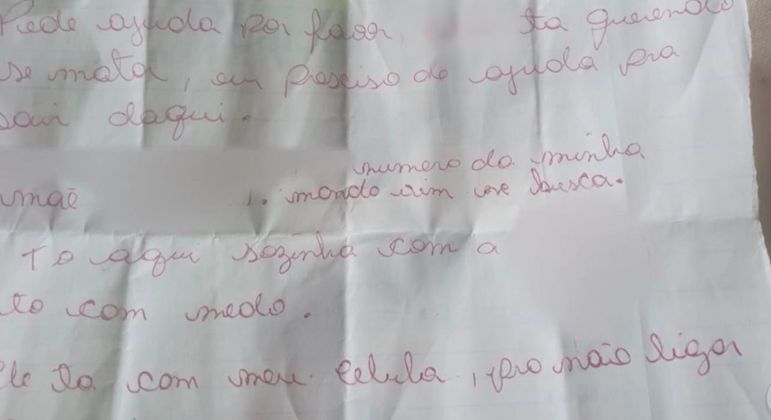 Pede ajuda por favor ta querendo
se mata, eu preciso de ajuda pra
sair daqui.
numero da minha
mãe 1. manda vim me busca.
To aqui sozinha com a
to com medo.
Ele ta com meu celula, pro não liga